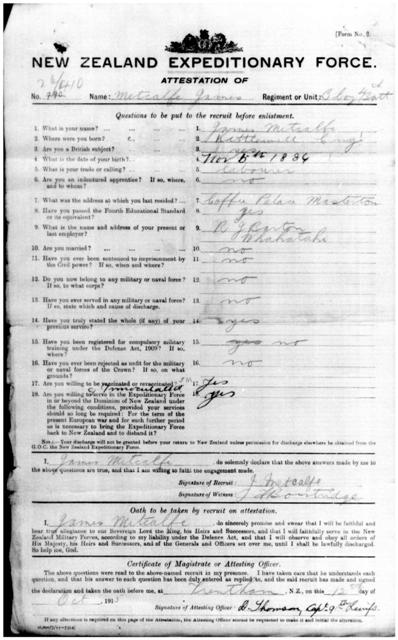 [Form No. 2.
NEW ZEALAND EXPEDITIONARY FORCE.
ATTESTATION OF
No. Name: Metcalfe James Regiment or Unit:
Questions to be put to the recruit before enlistment.
1. What is your name? ... 1. James Metcalfe
2. Where were you born? 2. Kettlewell Eng.
3. Are you a British subject? 3. yes
4. What is the date of your birth? 4. Nov 5th 1886
5. What is your trade or calling? 5. labourer
6. Are you an indentured apprentice? If so, where, and to whom? 6. no
7. What was the address at which you last resided? 7. Coffee Palace Masterton
8. Have you passed the Fourth Educational Standard or its equivalent? 8. yes
9. What is the name and address of your present or last employer? 9. R J Barton
10. Are you married? 10. no
11. Have you ever been sentenced to imprisonment by the Civil power? If so, when and where? 11. no
12. Do you now belong to any military or naval force? If so, to what corps? 12. no
13. Have you ever served in any military or naval force? If so, state which and cause of discharge. 13. no
14. Have you truly stated the whole (if any) of your previous service? 14. yes
15. Have you been registered for compulsory military training under the Defence Act, 1909? If so, where? 15. yes no
16. Have you ever been rejected as unfit for the military or naval forces of the Crown? If so, on what grounds? 16. no
17. Are you willing to be vaccinated or revaccinated? 17. yes
& Inoculated
18. Are you willing to serve in the Expeditionary Force in or beyond the Dominion of New Zealand under the following conditions, provided your services should so long be required: For the term of the present European war and for such further period as is necessary to bring the Expeditionary Force back to New Zealand and to disband it? 18. yes
NOTE.—Your discharge will not be granted before your return to New Zealand unless permission for discharge elsewhere be obtained from the G.O.C. the New Zealand Expeditionary Force.
I, James Metcalfe, do solemnly declare that the above answers made by me to the above questions are true, and that I am willing to fulfil the engagement made.
Signature of Recruit: J Metcalfe
Signature of Witness:
Oath to be taken by recruit on attestation.
I, James Metcalfe, do sincerely promise and swear that I will be faithful and bear true allegiance to our Sovereign Lord the King, his Heirs and Successors, and that I will faithfully serve in the New Zealand Military Forces, according to my liability under the Defence Act, and that I will observe and obey all orders of His Majesty, his Heirs and Successors, and of the Generals and Officers set over me, until I shall be lawfully discharged. So help me, God.
Certificate of Magistrate or Attesting Officer.
The above questions were read to the above-named recruit in my presence. I have taken care that he understands each question, and that his answer to each question has been duly entered as replied to, and the said recruit has made and signed the declaration and taken the oath before me, at Trentham, N.Z., on this 12th day of Oct 1915
Signature of Attesting Officer: D. Thomson, Capt.
If any alteration is required on this page of the Attestation, the Attesting Officer should be requested to make it and initial the alteration.